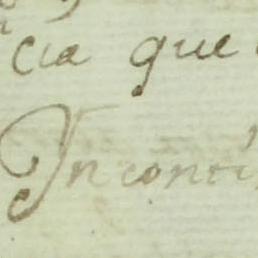 cia que
Inconti